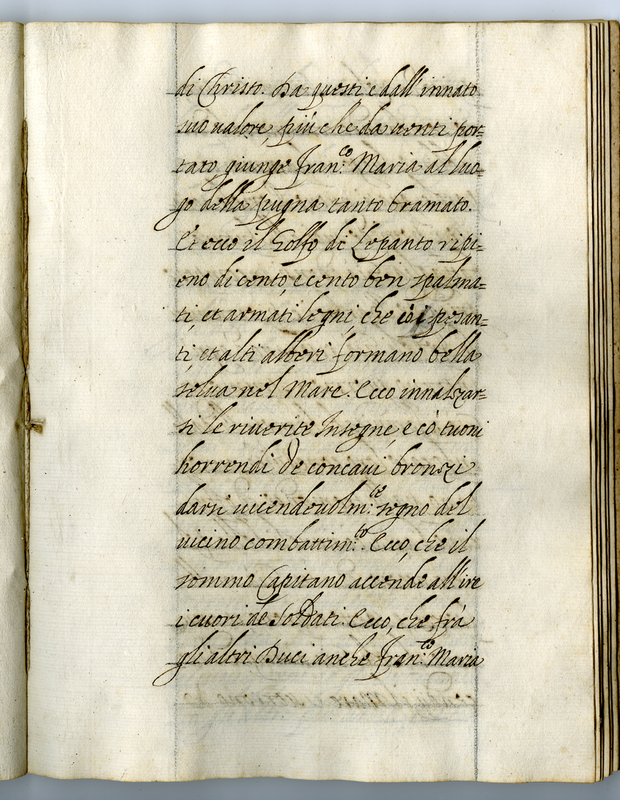 di Christo. Da questi e dall'innato
suo valore, più che da venti por=
tato giunge Fran:co Maria al luo=
go della pugna tanto bramato.
Et ecco il Golfo di Lepanto ripi=
eno di cento, e cento ben spalma=
ti, et armati legni, che co i pesan=
ti, et alti alberi formano bella
selva nel Mare. Ecco innalzar=
si le riverite Insegne, e cò tuoni
horrendi de concavi bronzi
darsi vicendevolm:te segno del
vicino combattim:to. Ecco, che il
sommo Capitano accende all'ire
i cuori de Soldati. Ecco, che frà
gli altri Duci anche Fran:co Maria